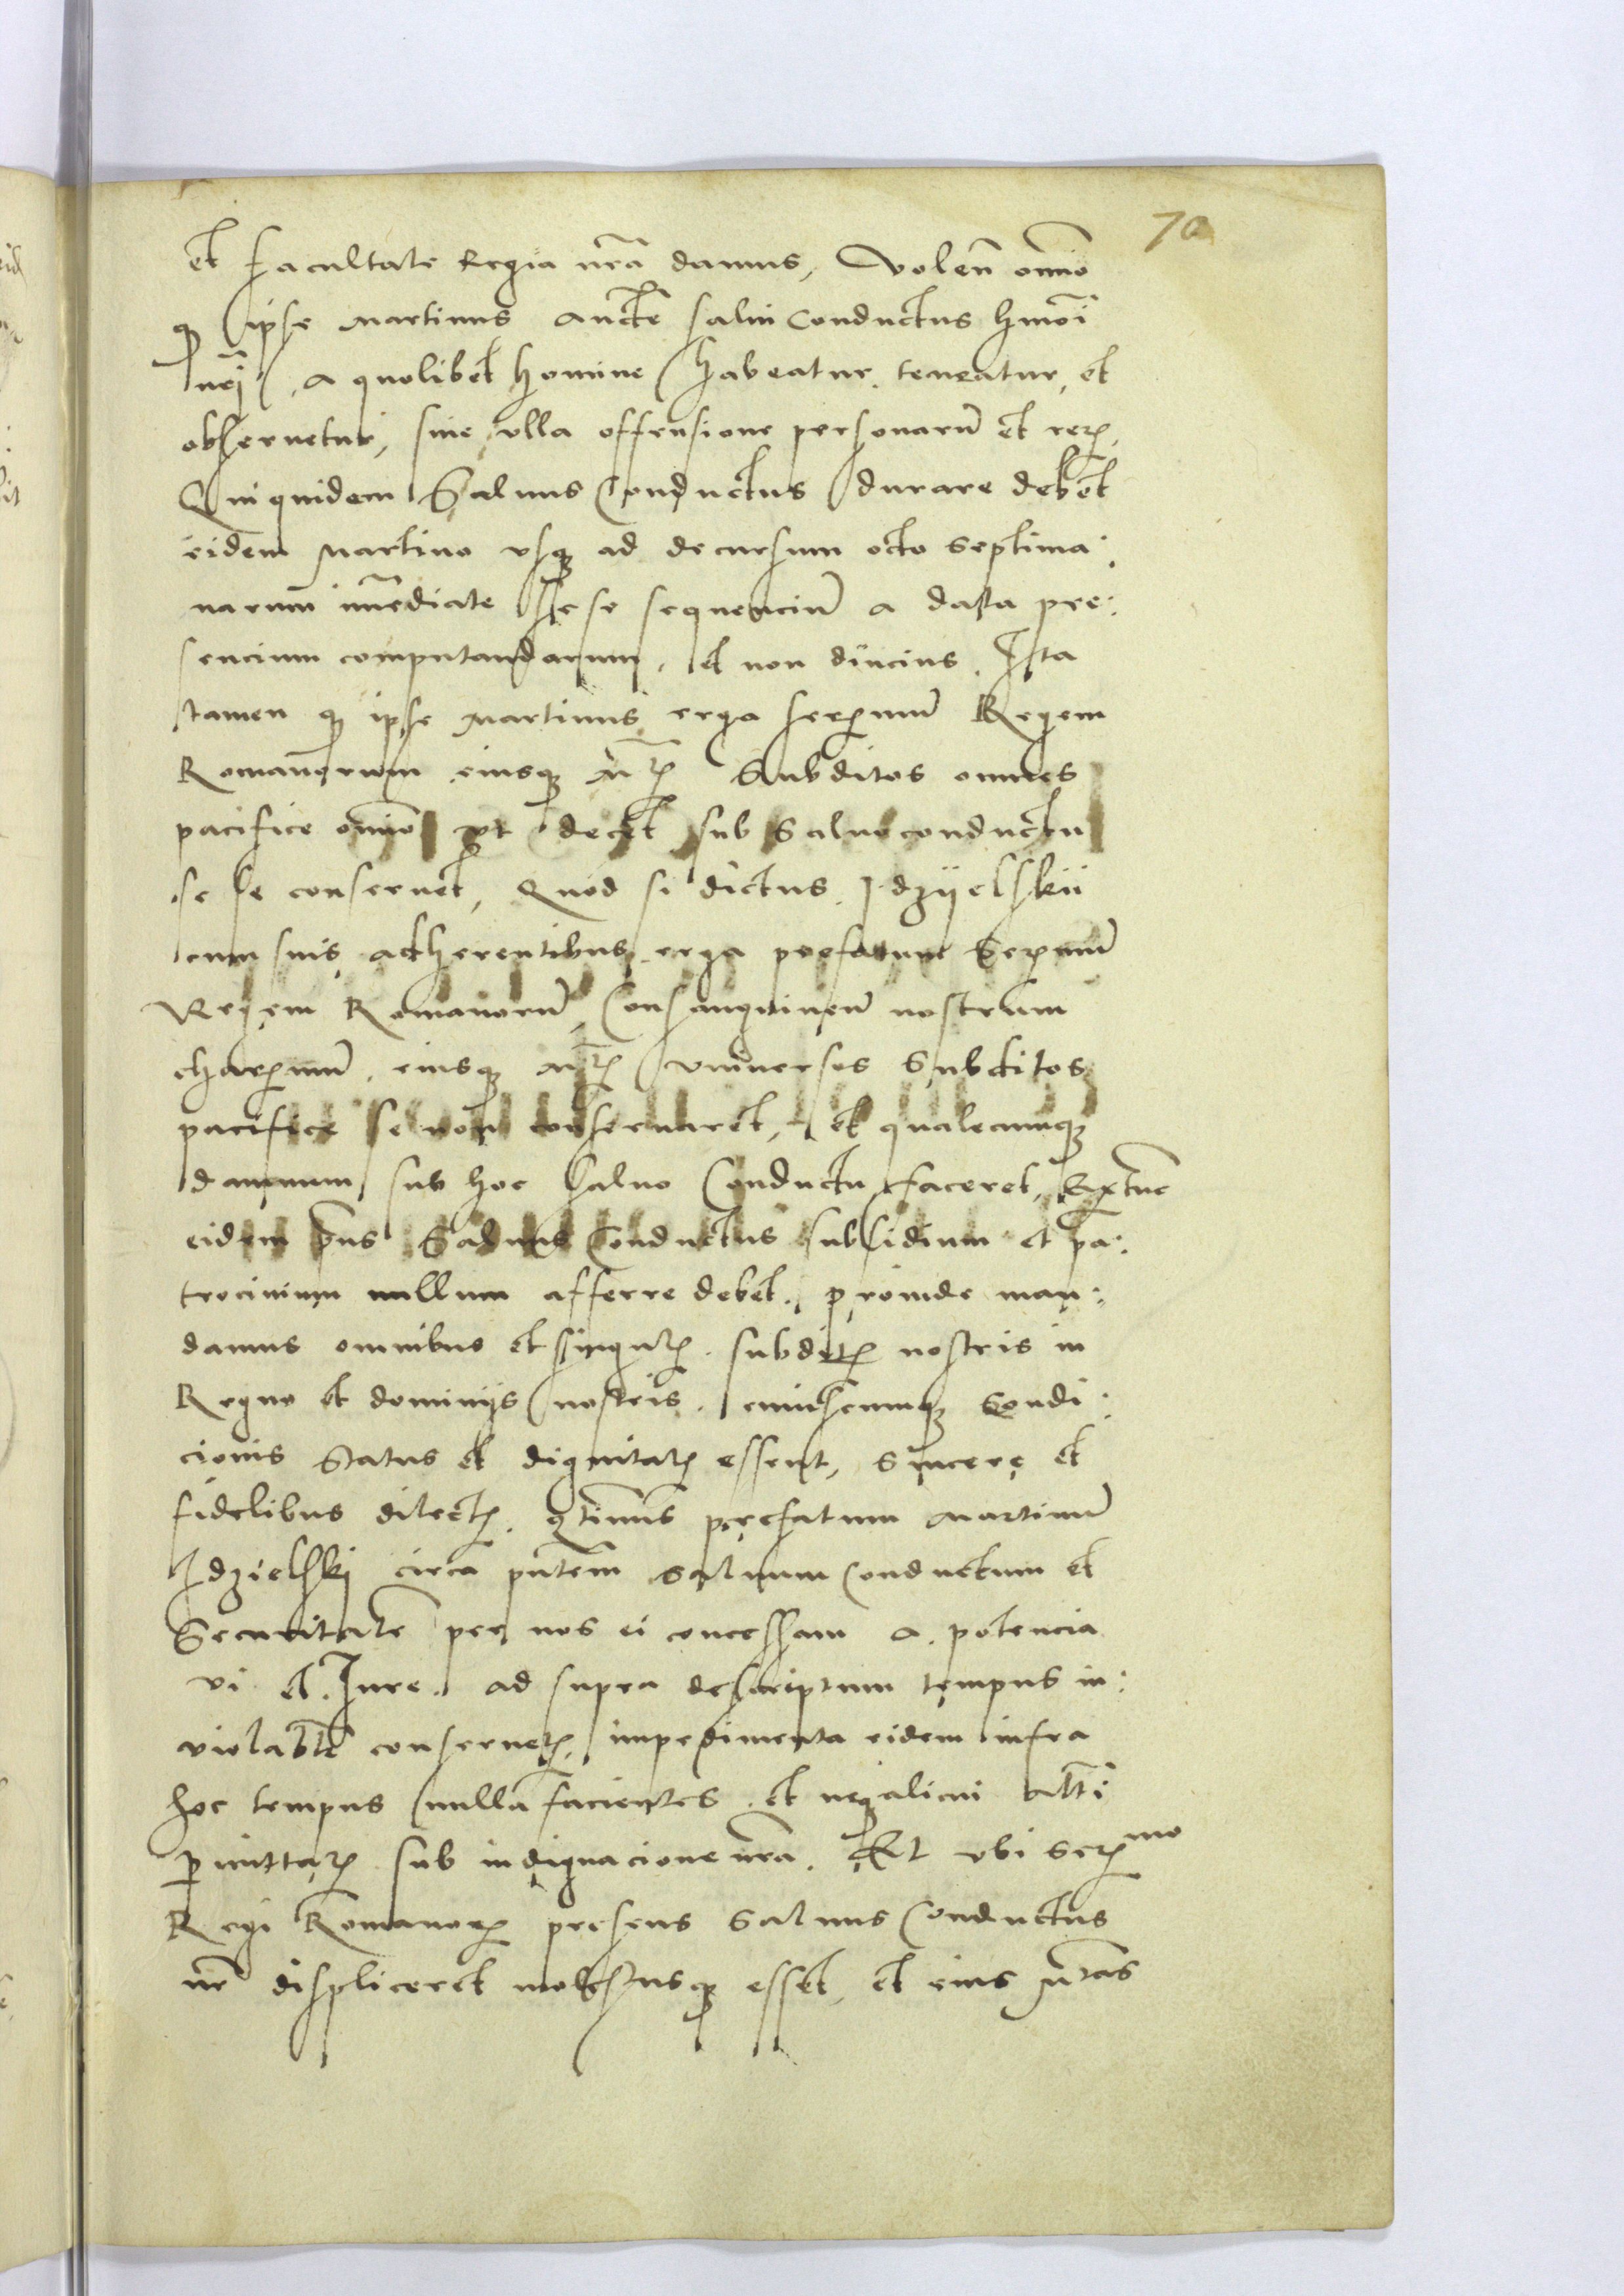 70
et facultate Regia nr̃a damus, Volen̄ om̄io
ꝙ ipse Martinus aucte salui conductus hmōi
nr̃j, a quolibet homine habeatur, teneatur, et
obseruetur, sine vlla offensione personarū et reꝝ,
Qui quidem Saluus Conductus durare debet
eidem Martino vsqꝫ ad decursum octo septima:
narum im̄ediate sese sequenciū a data pre:
sencium computandarum, et non diucius. Ita
tamen ꝙ ipse Martinus erga Serꝫmū Regem
Romanorum eiusqꝫ Mtꝫ Subditos omnes
pacifice om̄io vt decet sub Saluo conductu
se se conseruet, Quod si dictus Idzijelskii
cum suis adherentibus erga prefatum Serꝫmū
Regem Romanorū, Consanguineū nostrum
charꝫmū, eiusqꝫ Mtꝫ vniuersos Subditos
pacifice se non conseruaret, et qualecumqꝫ
damnum sub hoc Saluo Conductu faceret, Extūc
eidem pn̄s Saluus Conductus subsidium et pa:
trocinium nullum afferre debet. proinde man:
damus omnibus et singulꝫ subditꝫ nostris in
Regno et dominijs nostris, cuiuscumqꝫ Condi:
cionis Status et dignitatꝫ essent, Sincere et
fidelibus dilectꝫ, qtinus prefatum Martinū
Idzielskj circa pn̄tem saluum Conductum et
Securitatē per nos ei concessam a potencia
vi et Iure ad supra descriptum tempus in:
violabilē conseruetꝫ, impedimenta eidem infra
hoc tempus nulla facientes et neqꝫ alicui altī
ꝑmittatꝫ sub indignacione nr̃a. Et vbi Serꝫmo
Regi Romanorꝫ presens Saluus Conductus
nr̃ displiceret molestusqꝫ esset, et eius Mtas